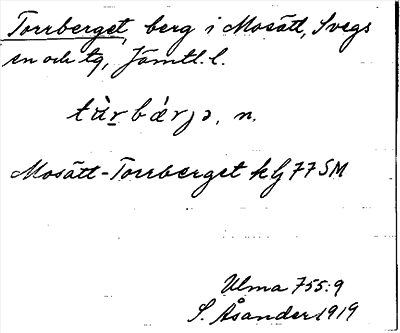 Torrberget, berg i Mosätt, Svegs
sn och tg, Jämtl. l.
tùrbǽrjə, n.
Mosätt-Torrberget klj 77 SM
Ulma 755:9
S. Åsander 1919